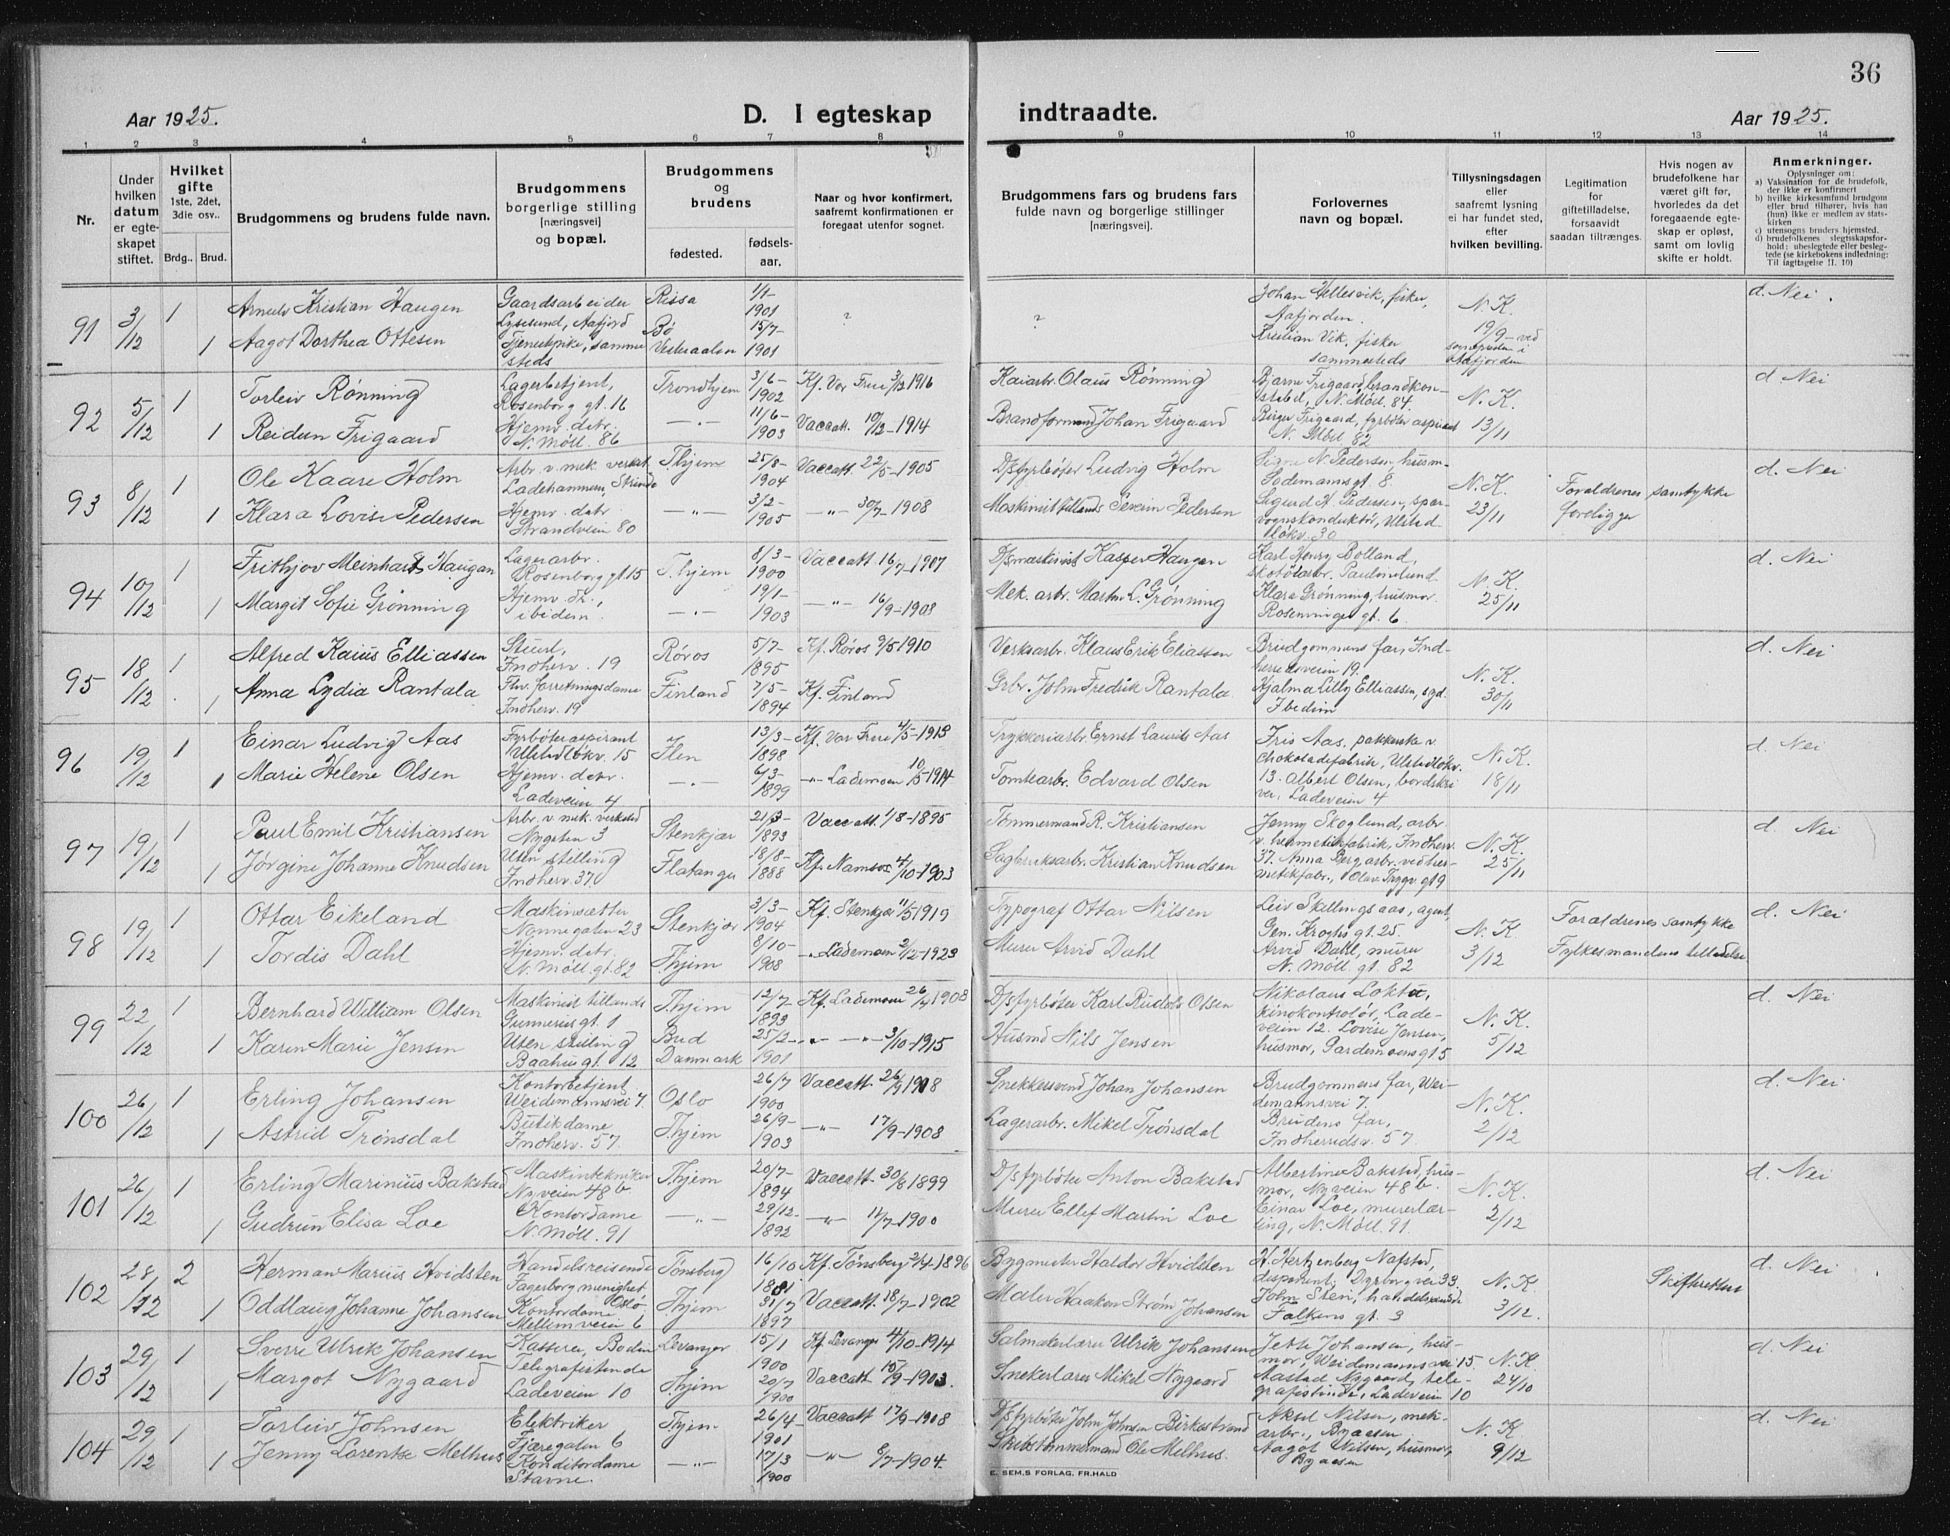 36
Aar 1925.
D. I egteskap indtraadte.
Aar 1925.
1 2 3 4 5 6 7 8 9 10 11 12 13 14
Nr.
Under hvilken datum er egteskapet stiftet.
Hvilket gifte
1ste, 2det, 3die osv..
Brdg.. Brud.
Brudgommens og brudens fulde navn.
Brudgommens borgerlige stilling [næringsvei] og bopæl.
Brudgommens og brudens
fødested.
fødselsaar.
Naar og hvor konfirmert, saafremt konfirmationen er foregaat utenfor sognet.
Brudgommens fars og brudens fars fulde navn og borgerlige stillinger [næringsvei].
Forlovernes navn og bopæl.
Tillysningsdagen eller saafremt lysning ei har fundet sted, efter hvilken bevilling.
Legitimation for giftetilladelse, forsaavidt saadan tiltrænges.
Hvis nogen av brudefolkene har været gift før, hvorledes da det foregaaende egteskap er opløst, samt om lovlig skifte er holdt.
Anmerkninger.
Oplysninger om:
a) Vaksination for de brudefolk, der ikke er konfirmert
b) hvilke kirkesamfund brudgom eller brud tilhører, hvis han (hun) ikke er medlem av statskirken
c) utensogns bruders hjemsted.
d) brudefolkenes slegtsskapsforhold: ubeslegtede eller beslegtede (se kirkebokens indledning: Til iagttagelse II. 10)
91 3/12 1 Arnulv Kristian Haugen Gaardsarbeider Rissa 1/1-1901 ? ? Johan Gellesvik, fisker, Aafjorden. N. K. d. Nei.
1 Aagot Dorthea Ottesen Lysesund, Aafjord Tjenestpike, sammesteds Bø Vesteraalen 15/7-1901 Kristian Vik, fisker sammesteds 19/9 - ved sognepresten i Aafjorden
92 5/12 1 Torleiv Rønning Lagerbetjent, Rosenborg gt. 16 Trondhjem 3/6-1902 Kf. Vor Frue 3/12 1916 Kaiarb. Olaus Rønning Bjarne Frigaard, brandkonstabel, N. Møll. 84 N. K. d. Nei
1 Reidun Frigaard Hjemv. detr. N. Møll. 86 -"- 11/6-1903 Vaccatt. 10/12-1914 Brandformand Johan Frigaard Birger Frigaard, fyrbøter aspirant N. Møll 82 13/11
93 8/12 1 Ole Kaare Holm Arbr. v. mek. verkst. Ladehammeren, Strinda T.hjem 25/8-1904 Vaccatt 22/5-1905 D/sfyrbøter Ludvig Holm Signe N. Pedersen, husm. Sodemannsgt 8 N. K. Foraldrenes samtykke d. Nei
1 Klara Lovise Pedersen Hjemv. detr. Strandveien 80 -"- 3/2-1905 -"- 30/7-1908 Maskinist tillands Severin Pedersen Sigurd H. Pedersen, sporvognskonduktør, Ulstadløkv. 30 23/11 foreligger
94 10/12 1 Frithjov Meinhardt Haugan Lagerarbr. Rosenborg gt 15 T.hjem 8/3-1900 Vaccatt 16/7-1907 D/smaskinist Kasper Haugen Karl Henry Bolland, skotøiarbr. Paulinelund N. K. d. Nei
1 Margit Sofie Grønning Hjemv. dtr., ibidem. -"- 19/1-1903 -"- 16/9-1908 Mek. arbr. Martin L. Grønning Klara Grønning, husmor. Rosenvinges gt. 6 25/11
95 18/12 1 Alfred Kaius Elliassen Stuert, Indherv. 19 Røros 5/7-1895 Kf. Røros 9/5 1910 Verksarbr. Klaus Erik Eliassen Brudgommens far, Indherredsveien 19. N. K. d. Nei
1 Anna Lydia Rantala Fhv. forretningsdame Indherv. 19 Finland 7/5-1894 Kf. Finland Grbr. John Fredrik Rantala Hjalma Lilly Elliassen, sgd. Ibedem 30/11
96 19/12 1 Einar Ludvig Aas Fyrbøteraspirant Ulstadløkv. 15 Ilen 13/3-1898 Kf. Vor Frue 4/5-1913 Trykkeriarbr. Ernst Laurits Aas Iris Aas, pakkerske v. chokoladefabrik, Ulstadløkv. N. K. d. Nei
1 Marie Helene Olsen Hjemv. detr. Ladeveien 4 -"- 6/3-1899 -"- Lademoen 10/5-1914 Tomtearbr. Edvard Olsen 13. Albert Olsen, bordskriver, Ladeveien 4 18/11
97 19/12 1 Paul Emil Kristiansen Arbr. v. mek. verksted Nygaten 3 Stenkjær 21/3-1893 Vaccatt. 1/8-1895 Tømmermand R. Kristiansen Jenny Skoglund, arbr. v. hermetikfabrik, Indherv. N. K. d. Nei
1 Jørgine Johanne Knudsen Uten stilling Indherv. 37 Flatanger 18/8-1888 Kf. Namsos 4/10-1903 Sagbruksarbr. Kristian Knudsen 37. Anna Berg, arbr. ved hermetikfabr., Olav Trygv. gt 9 25/11
98 19/12 1 Ottar Eikeland Maskinsætter Nonnegaten 23 Stenkjær 3/3-1904 Kf. Stenkjær 11/5 1919 Typograf Ottar Nilsen Leiv Skillingsaas, agent, Gen. Kroghs gt. 25. N. K Foraldrenes samtykke d. Nei
1 Tordis Dahl Hjemv. detr. N. Møll. gt. 82 T.hjem 8/10-1908 -"- Lademoen 2/12-1923 Murer Arvid Dahl Arvid Dahl, murer N. Møll gt. 82 3/12 Fylkesmandens tilladelse
99 22/12 1 Bernhard William Olsen Maskinist tillands Gunnerus gt. 1 T.hjem 12/7-1893 Kf. Lademoen 26/4 1908 D/sfyrbøter Karl Rudols Olsen Nikolaus Loktu, kinokontrolør, Ladeveien 12. N. K. d. Nei
1 Karen Marie Jensen Uten stilling Baahus gt. 12 Bud Danmark 25/2-1901 -"- -"- 3/10-1915 Husmd Nils Jensen Lovise Jensen, husmor, Gardemoens gt 5 5/12
100 26/12 1 Erling Johansen Kontorbetjent Weidemannsvei 7. Oslo 26/7 1900 Vaccatt 26/9 1908 Snekkersvend Johan Johansen Brudgommens far, Weidemannsvei 7. N. K. d. Nei
1 Astrid Trønsdal Butikdame Indherv. 57 T.hjem 26/9-1903 -"- 17/9-1908 Lagerarbr. Mikel Trønsdal Brudens far, Indherredsv. 57 2/12
101 26/12 1 Erling Marinius Bakstad Maskintekniker Nyveien 48 b T.hjem 20/7-1894 Vaccatt 30/8 1899 D/sfyrbøter Anton Bakstad Albertine Bakstad, husmor, Nyveien 48 b. N. K. d. Nei
1 Gudrun Elisa Loe Kontordame N. Møll. 91 -"- 29/12-1892 -"- 11/7-1900 Murer Ellef Martin Loe Einar Loe, murerlærling, N. Møll. 91 2/12
102 28/12 2 Herman Marius Hvidsten Handelsreisende Fagerborg menighet Oslo Tønsberg 16/10 1881 Kf. Tønsberg 2/4-1896 Bygmester Haldor Hvidsten H. Hertzenberg Nafstad, disponent, Dyrborgvei 33. N. K. Skifteretten d. Nei
1 Oddlaug Johanne Johansen Kontordame Mellemveien 6 T.hjem 31/7 1897 Vaccatt. 18/7-1902 Maler Haaken Strøm Johansen John Steri, handelsreisende Falkens gt. 3 3/12.
103 29/12 1 Sverre Ulrik Johansen Kasserer, Bodin Levanger 15/1 1900 Kf. Levanger 4/10-1914 Salmakerlærer Ulrik Johansen Jette Johansen, husmor, Weidemannsvei 15 N. K. d. Nei
1 Margot Nygaard Telegrafistinde Ladeveien 10 T.hjem 20/7 1900 Vaccatt 10/9-1903. Snekerlærer Mikel Nygaard Aastad Nygaard, telegrafistinde, Ladeveien 10 24/10
104 29/12 1 Torleiv Johnsen Elektriker Fjæregaten 6 T.hjem 26/4 1901 Vaccatt 17/9-1908 D/sfyrbøter John Johnsen Birkestrand Aksel Nilsen, mek. arbr., Byaasen N. K d. Nei
1 Jenny Lorentse Melhus Konditordame Stavne. -"- 17/3 1900 -"- 6/7-1904. Skibstømmermand Ole Melhus. Aagot Nilsen, husmor, Byaasen 9/12
E. SEM,S FORLAG, FR.HALD